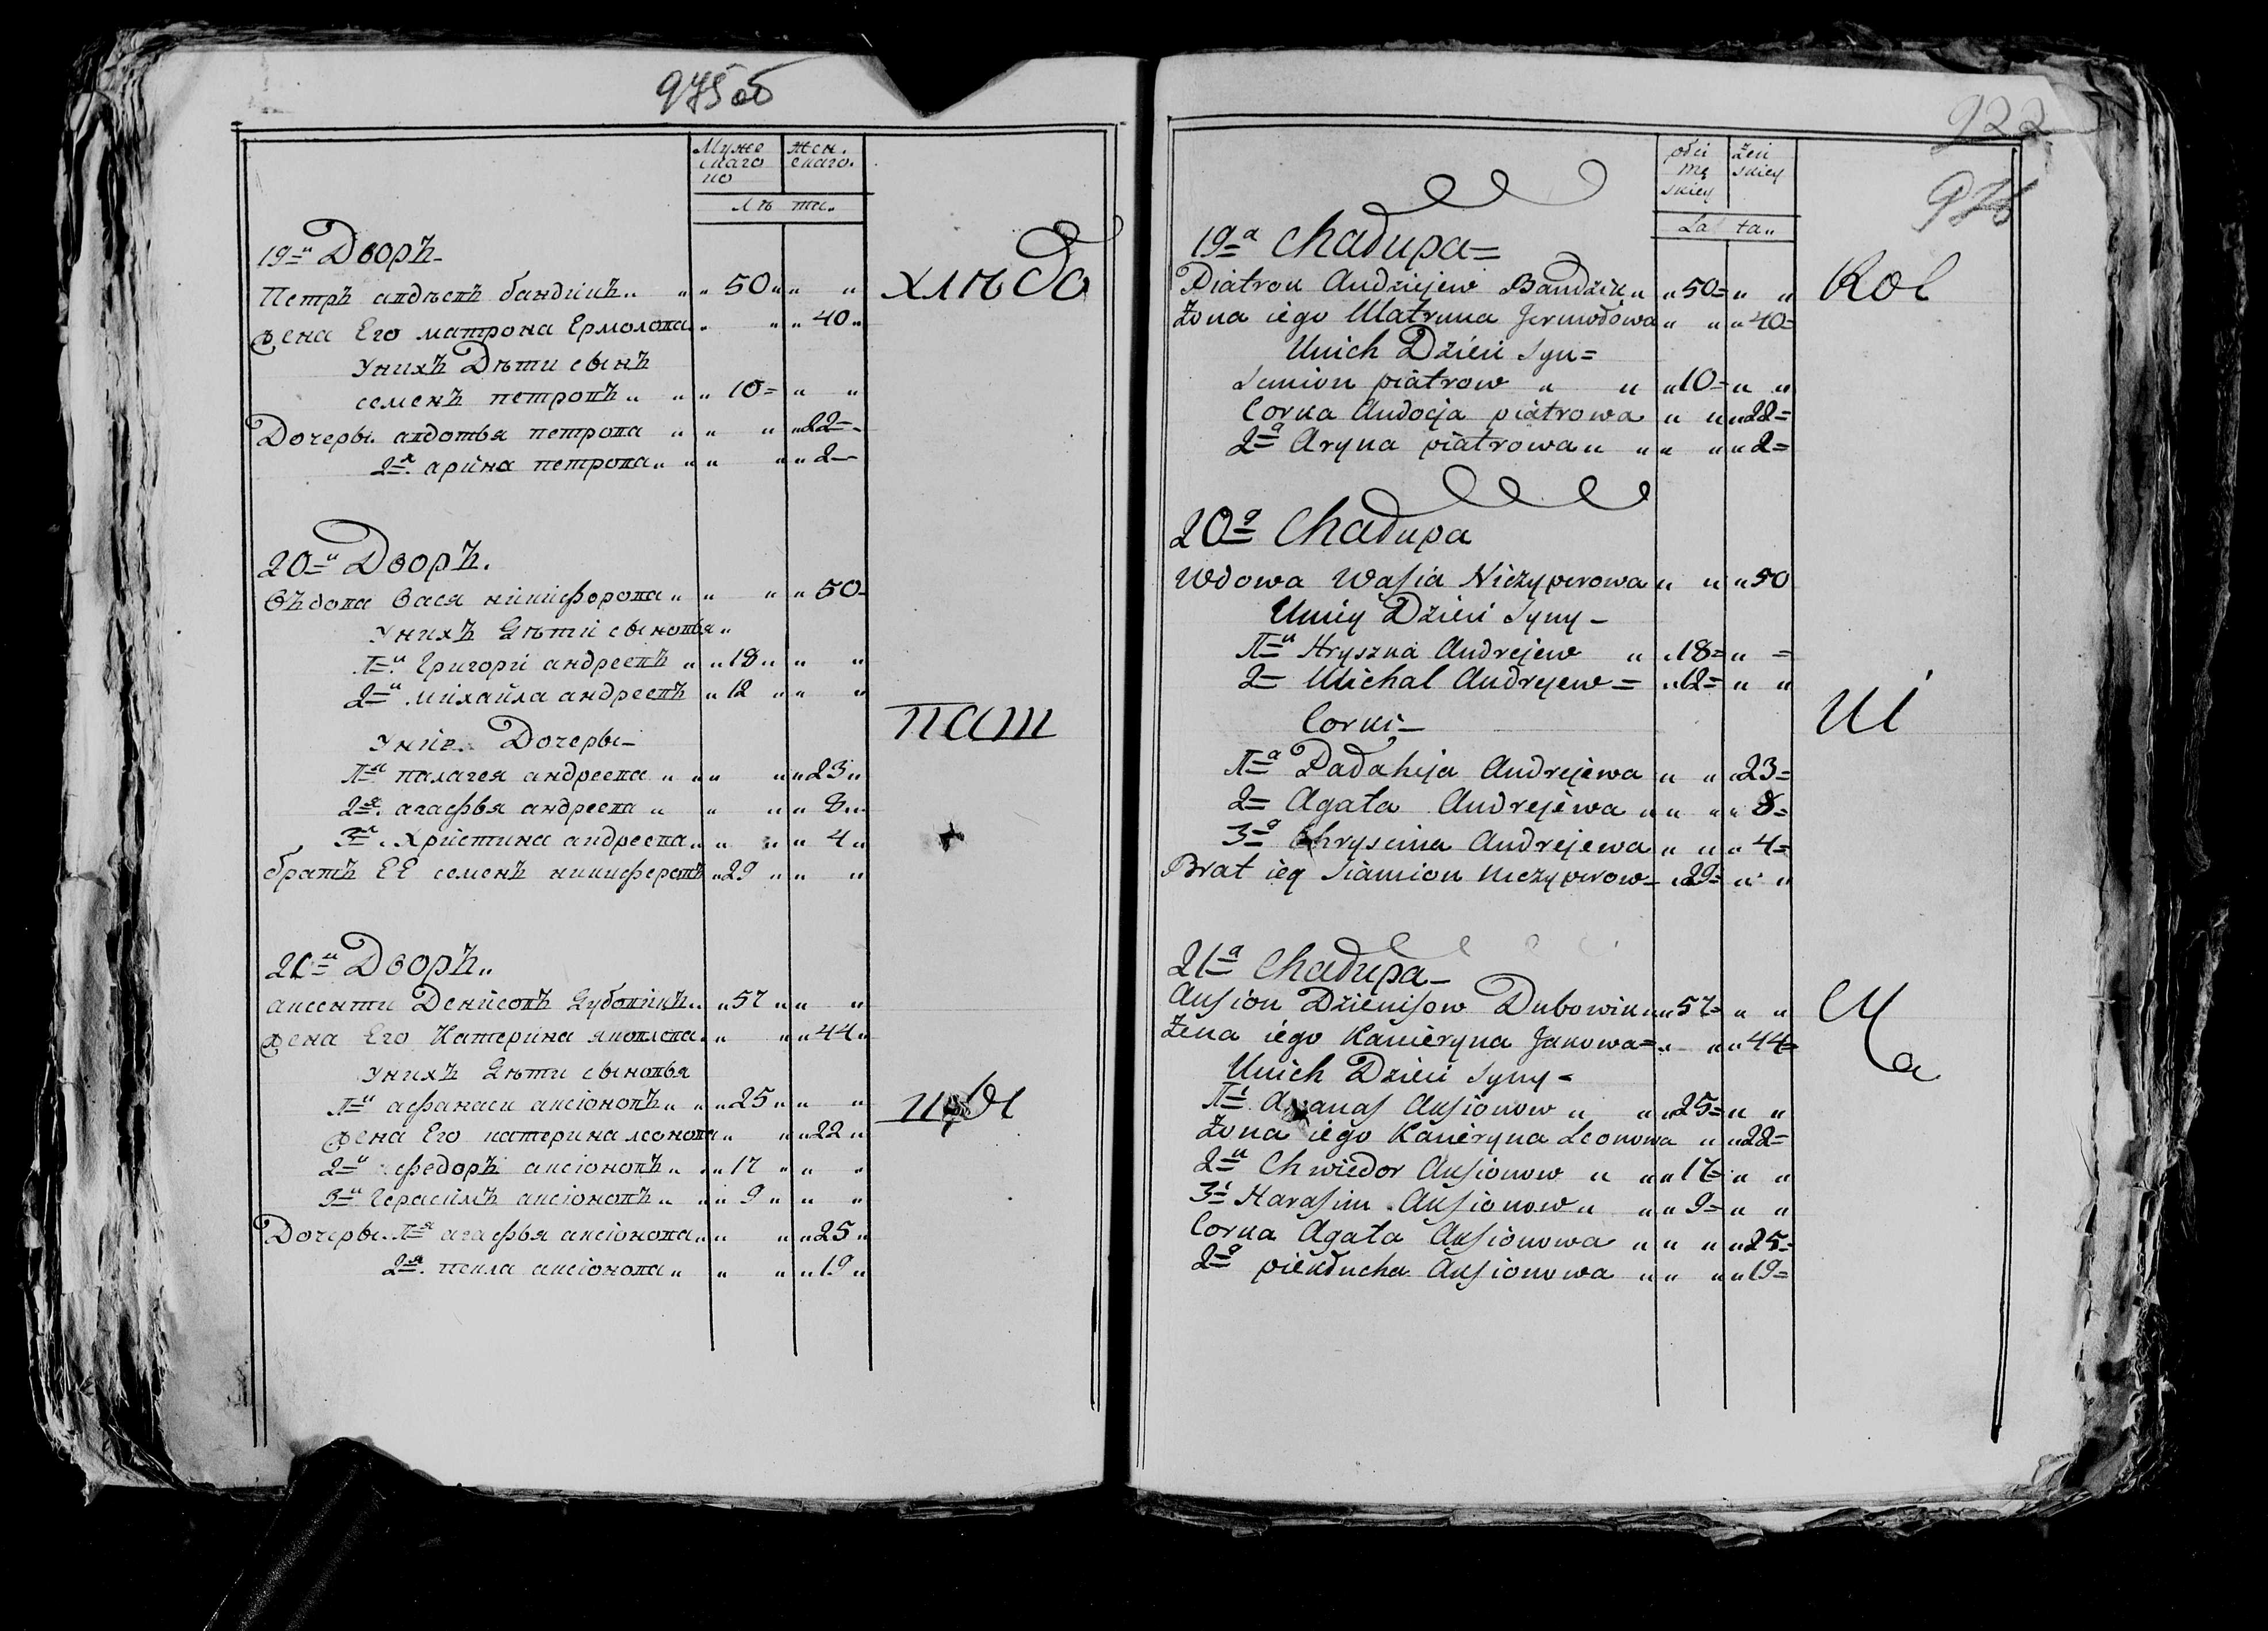 975об
Муже
скаго
по
Жен.
скаго.
лѣ та.
19-й Дворъ
хлѣбо
Петръ андѣевъ бандикъ 50
жена Его матрона Ермолова 40
Унихъ Дѣти сынъ
семенъ петровъ 10
Дочеры авдотья петрова 22
2-я арина петрова 2
20-й Дворъ.
вѣдова Вася никифорова 50
Унихъ Дѣти сыновья
1-й Григорги андреевъ 18
2-й михайла андреевъ 12
паш
Уние Дочеры
1-я палагея андреева 23
2-я агафья андреева 8
3-я Христина андреева 4
братъ ЕЕ семенъ никифоровъ 29
21-й Дворъ
аксенти Денисовъ Дубовикъ 57
жена Его Катерина яковлева 44
Унихъ Дѣти сыновья
1-й афанаси аксіоновъ 25
жена Его катерина леонова 22
2-й федоръ аксіоновъ 17
3-й Герасимъ аксіоновъ 9
Дочеры 1-я агафья аксіонова 25
2-я текла аксіонова 19
922
976
płci
mę
skiey
żeń
skiey
La ta
19-a Chadupa
Rol
Piatrou Andziejew Bandzik 50
Żona iego Matruna Jermołowa 40
Unich Dzieci Syn
Semion piatrow 10
Corka Audocja piatrowa 22
2-a Aryna piatrowa 2
20-a Chadupa
Wdowa Wasia Niczyperowa 50
Uniey Dzieci Syny
1-y Hryszka Andrejew 18
2 Michał Andrejew 12
ni
Corki
1-a Pałahija Andrejewa 23
2 Agata Andrejewa 8
3-a Chryscina Andrejewa 4
Brat iey Siamion Niczyperow 29
21-a Chadupa
Ausion Dzienisow Dubowik 57
Żena iego Kacieryna Jakowa 44
Unich Dzieci Syny
1-i Apanas Ausionow 25
Żona iego Kacieryna Leonowa 22
2-y Chwiedor Ausionow 17
3-i Harasim Ausionow 9
Corka Agata Ausionowa 25
2-a piekłucha Ausionowa 19